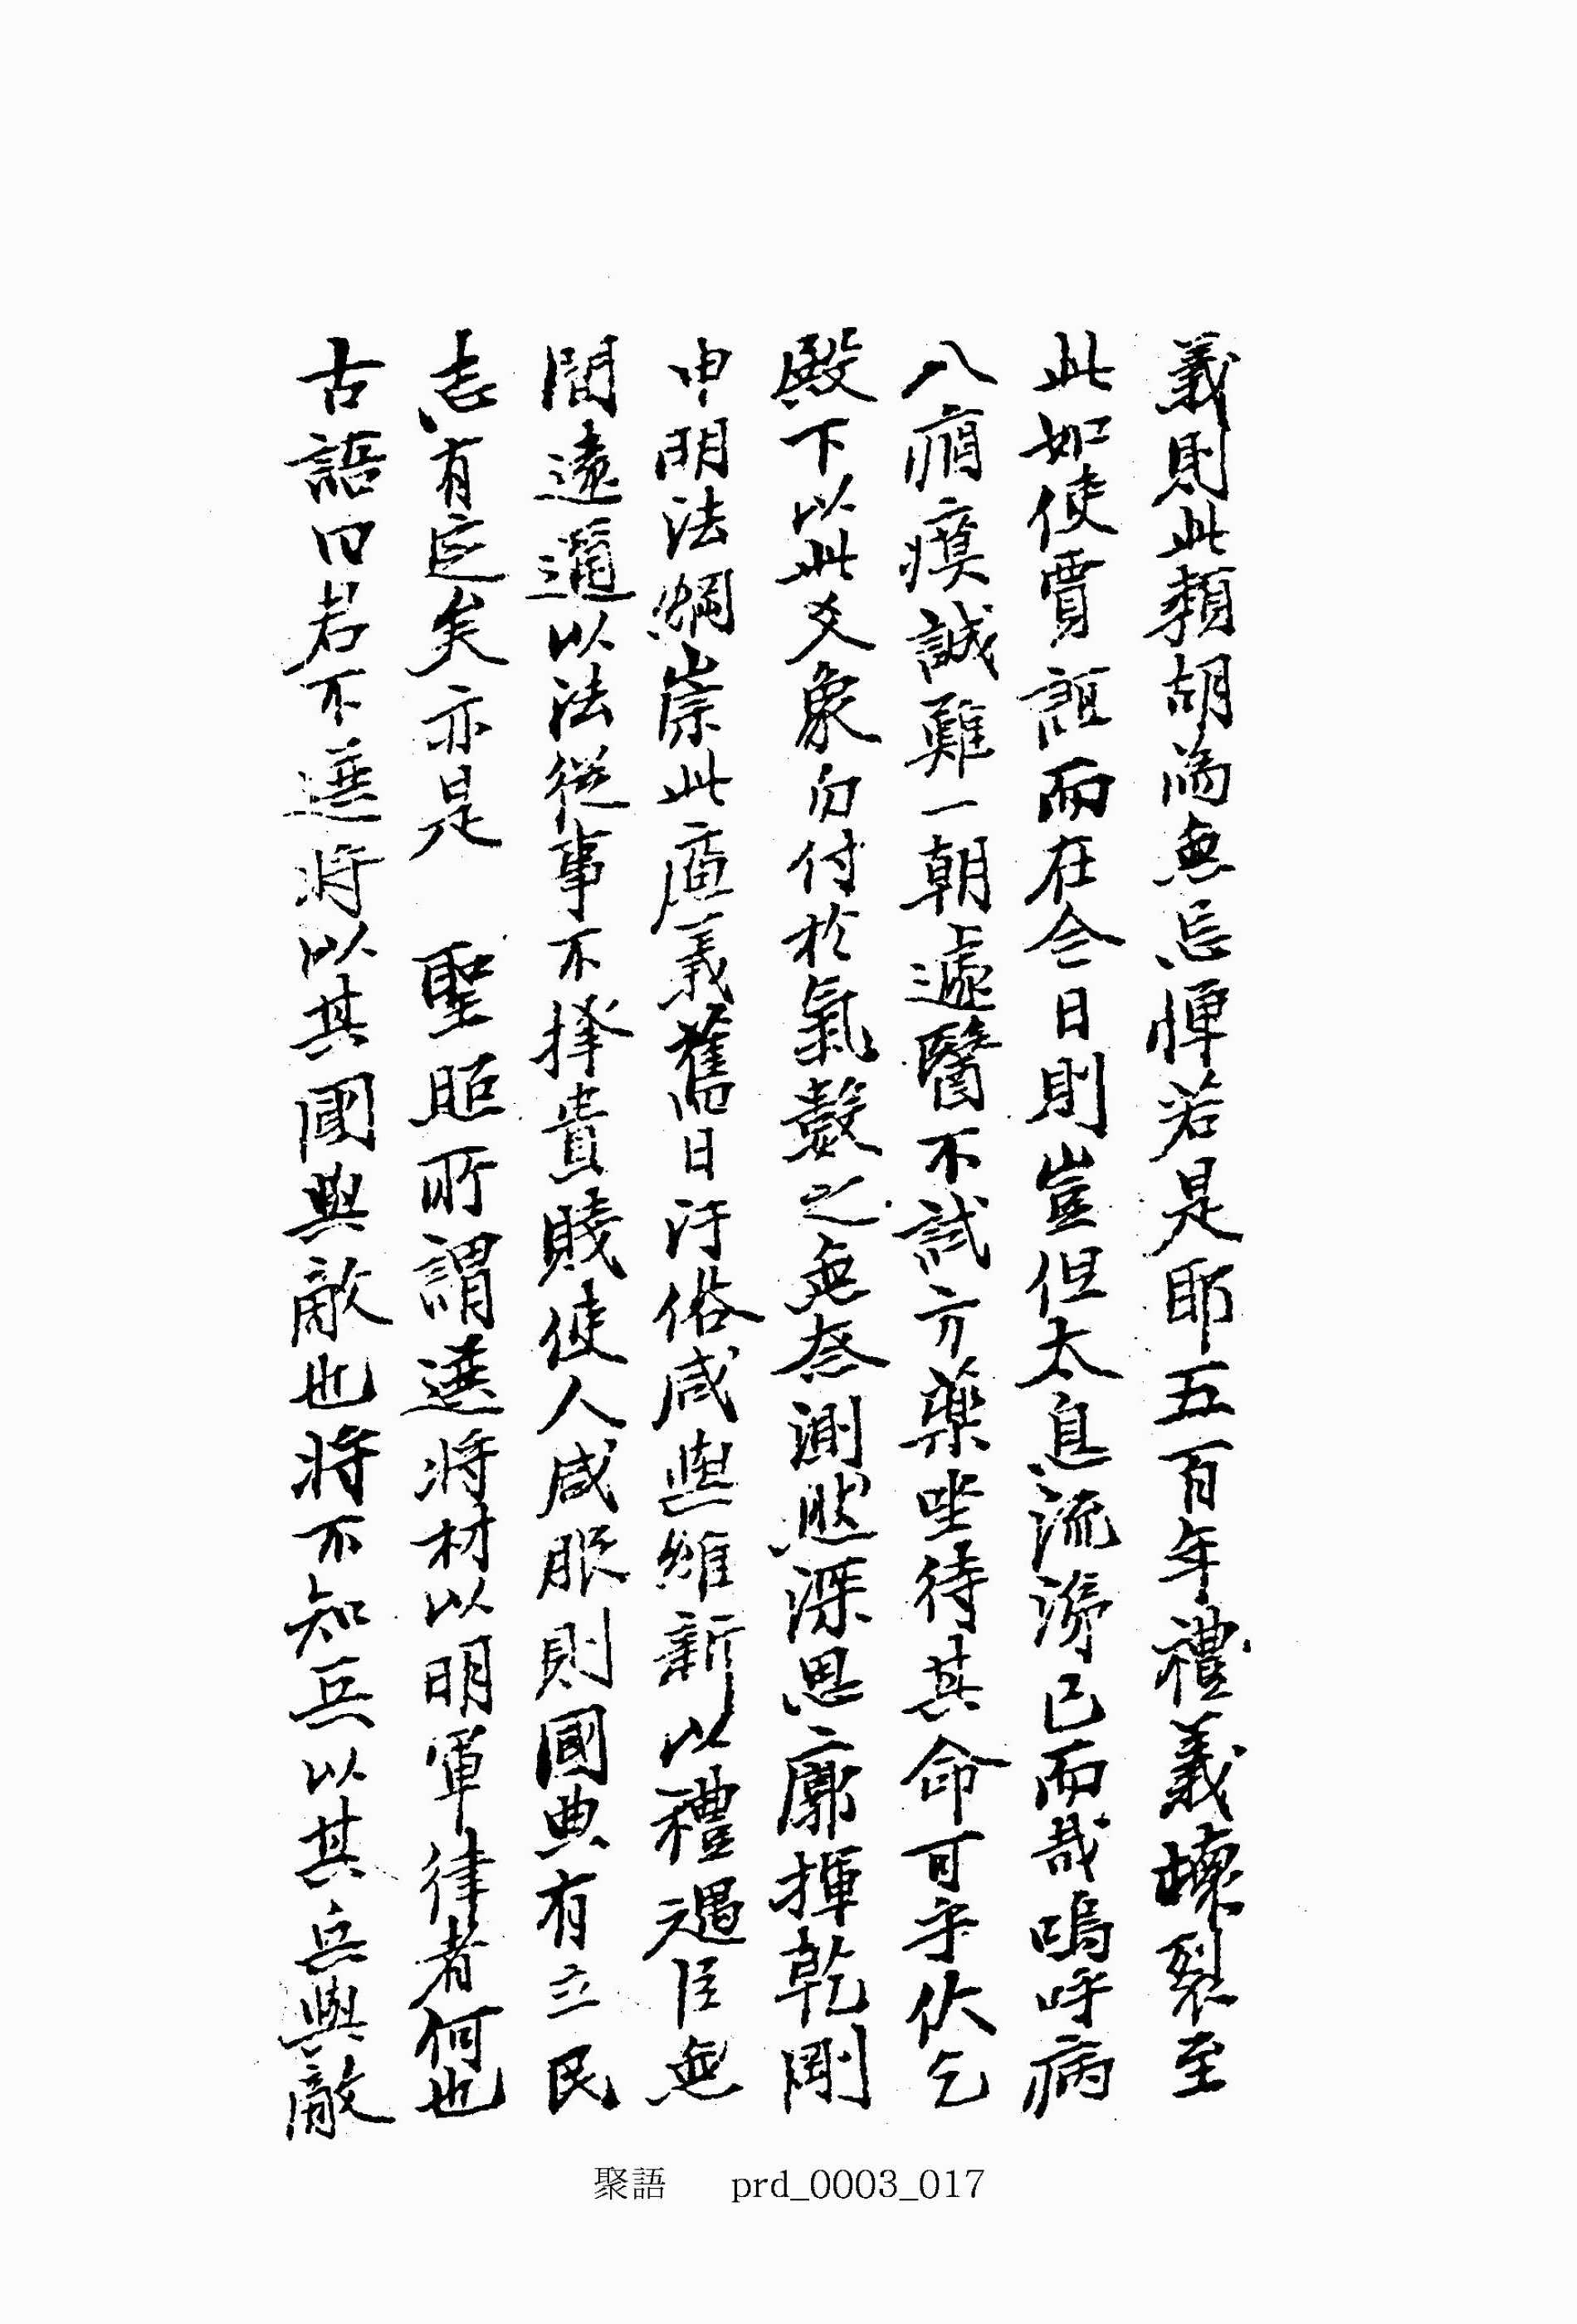 義則此類胡爲無忌憚若是耶五百年禮義壞裂至
此如使賈誼而在今日則豈但太息流涕已而哉嗚呼病
入痼瘼誠難一朝遽醫不試方藥坐待其命可乎伏乞
殿下以此爻象勿付於氣數之無奈測然深思廓揮乾剛
申明法綱崇此廉義舊日汙俗咸與維新以禮遇臣無
間遠邇以法從事不擇貴賤使人咸服則國典有立民
志有定矣亦是 聖照所謂選將材以明軍律者何也
古語曰若不選將以其國與敵也將不知兵以其兵與敵
聚語 prd_0003_017